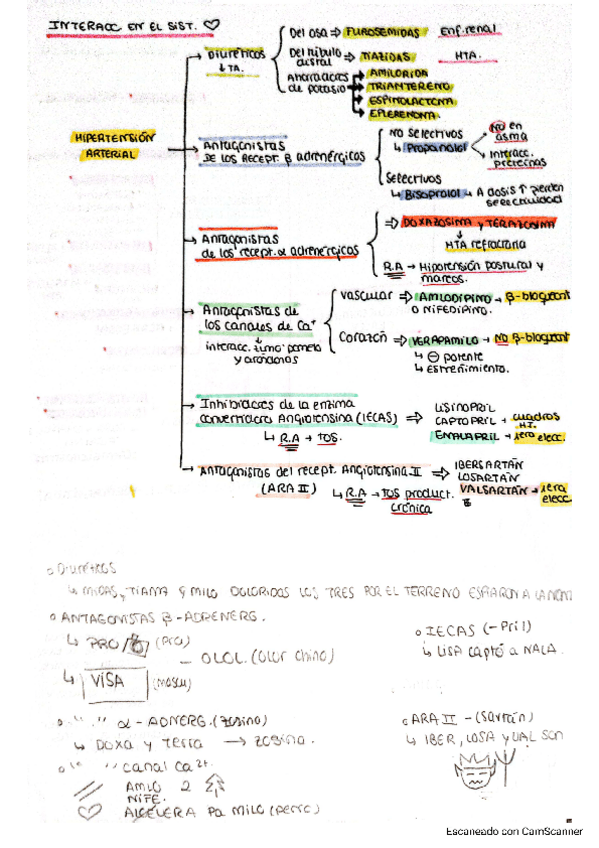 INTERACC EN EL SIST.
HIPERTENSIÓN
ARTERIAL
DIURÉTICOS
↓ TA.
Del asa ⇒ FUROSEMIDAS Enf. renal
Del túbulo
distal ⇒ TIAZIDAS HTA.
Ahorradores
de potasio
AMILORIDA
TRIANTERENO
ESPINOLACTONA
EPLERENONA.
Antagonistas
DE LOS RECEPT. β adrenérgicos
NO Selectivos
↳ Propanolol
NO en
asma
Interacc.
proteinas
Selectivos
↳ Bisoprolol → A dosis ↑ pierden
selectividad
Antagonistas
de los recept. α adrenérgicos
⇒ DOXAZOSINA y TERAZOSINA
↓
HTA refractaria
R.A → Hipotensión postural y
mareos.
Antagonistas de
los canales de Ca⁺
interacc. zumo pomelo
y arándanos
Vascular ⇒ AMLODIPINO → β-bloqueant
O NIFEDIPINO.
Corazón ⇒ VERAPAMILO → NO β-bloqueant
↳ ⊖ potente
↳ Estreñimiento.
Inhibidores de la enzima
convertidora Angiotensina (IECAS) ⇒
↳ R.A → TOS.
LISINOPRIL
CAPTOPRIL → cuadros
H.T.
ENALAPRIL → 1era elecc.
Antagonistas del recept. Angiotensina II ⇒
(ARA II)
↳ R.A → TOS product.
crónica
IBERSARTÁN
LOSARTÁN
VALSARTÁN → 1era
elecc
Diuréticos
↳ MIDAS, TIAMA Y MILO DOLORIDOS LOS TRES POR EL TERRENO
ANTAGONISTAS β - ADRENERG.
↳ PRO (Pro)
OLOL. (Olor chino)
↳ VISA
IECAS (-Pril)
↳ LISA captó a NALA.
" " α - ADNERG. (zosina)
↳ DOXA y Terra → zosina.
" " canal ca²⁺.
AMLO 2
NIFE.
ACELERA PA MILO
ARA II - (Sartán)
↳ IBER, LOSA y VAL SON
Escaneado con CamScanner